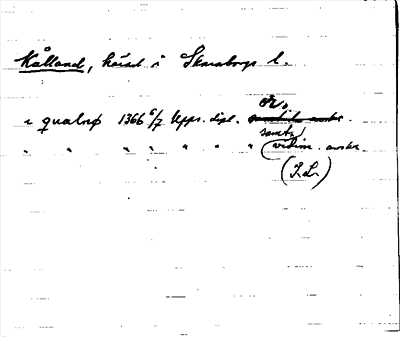 Kålland, härad i Skaraborgs l.
Or.
i qualnø 1366 6/7 Upps. dipl.
samt
" " " " " " " (vidim. avskr.
(I.L.)